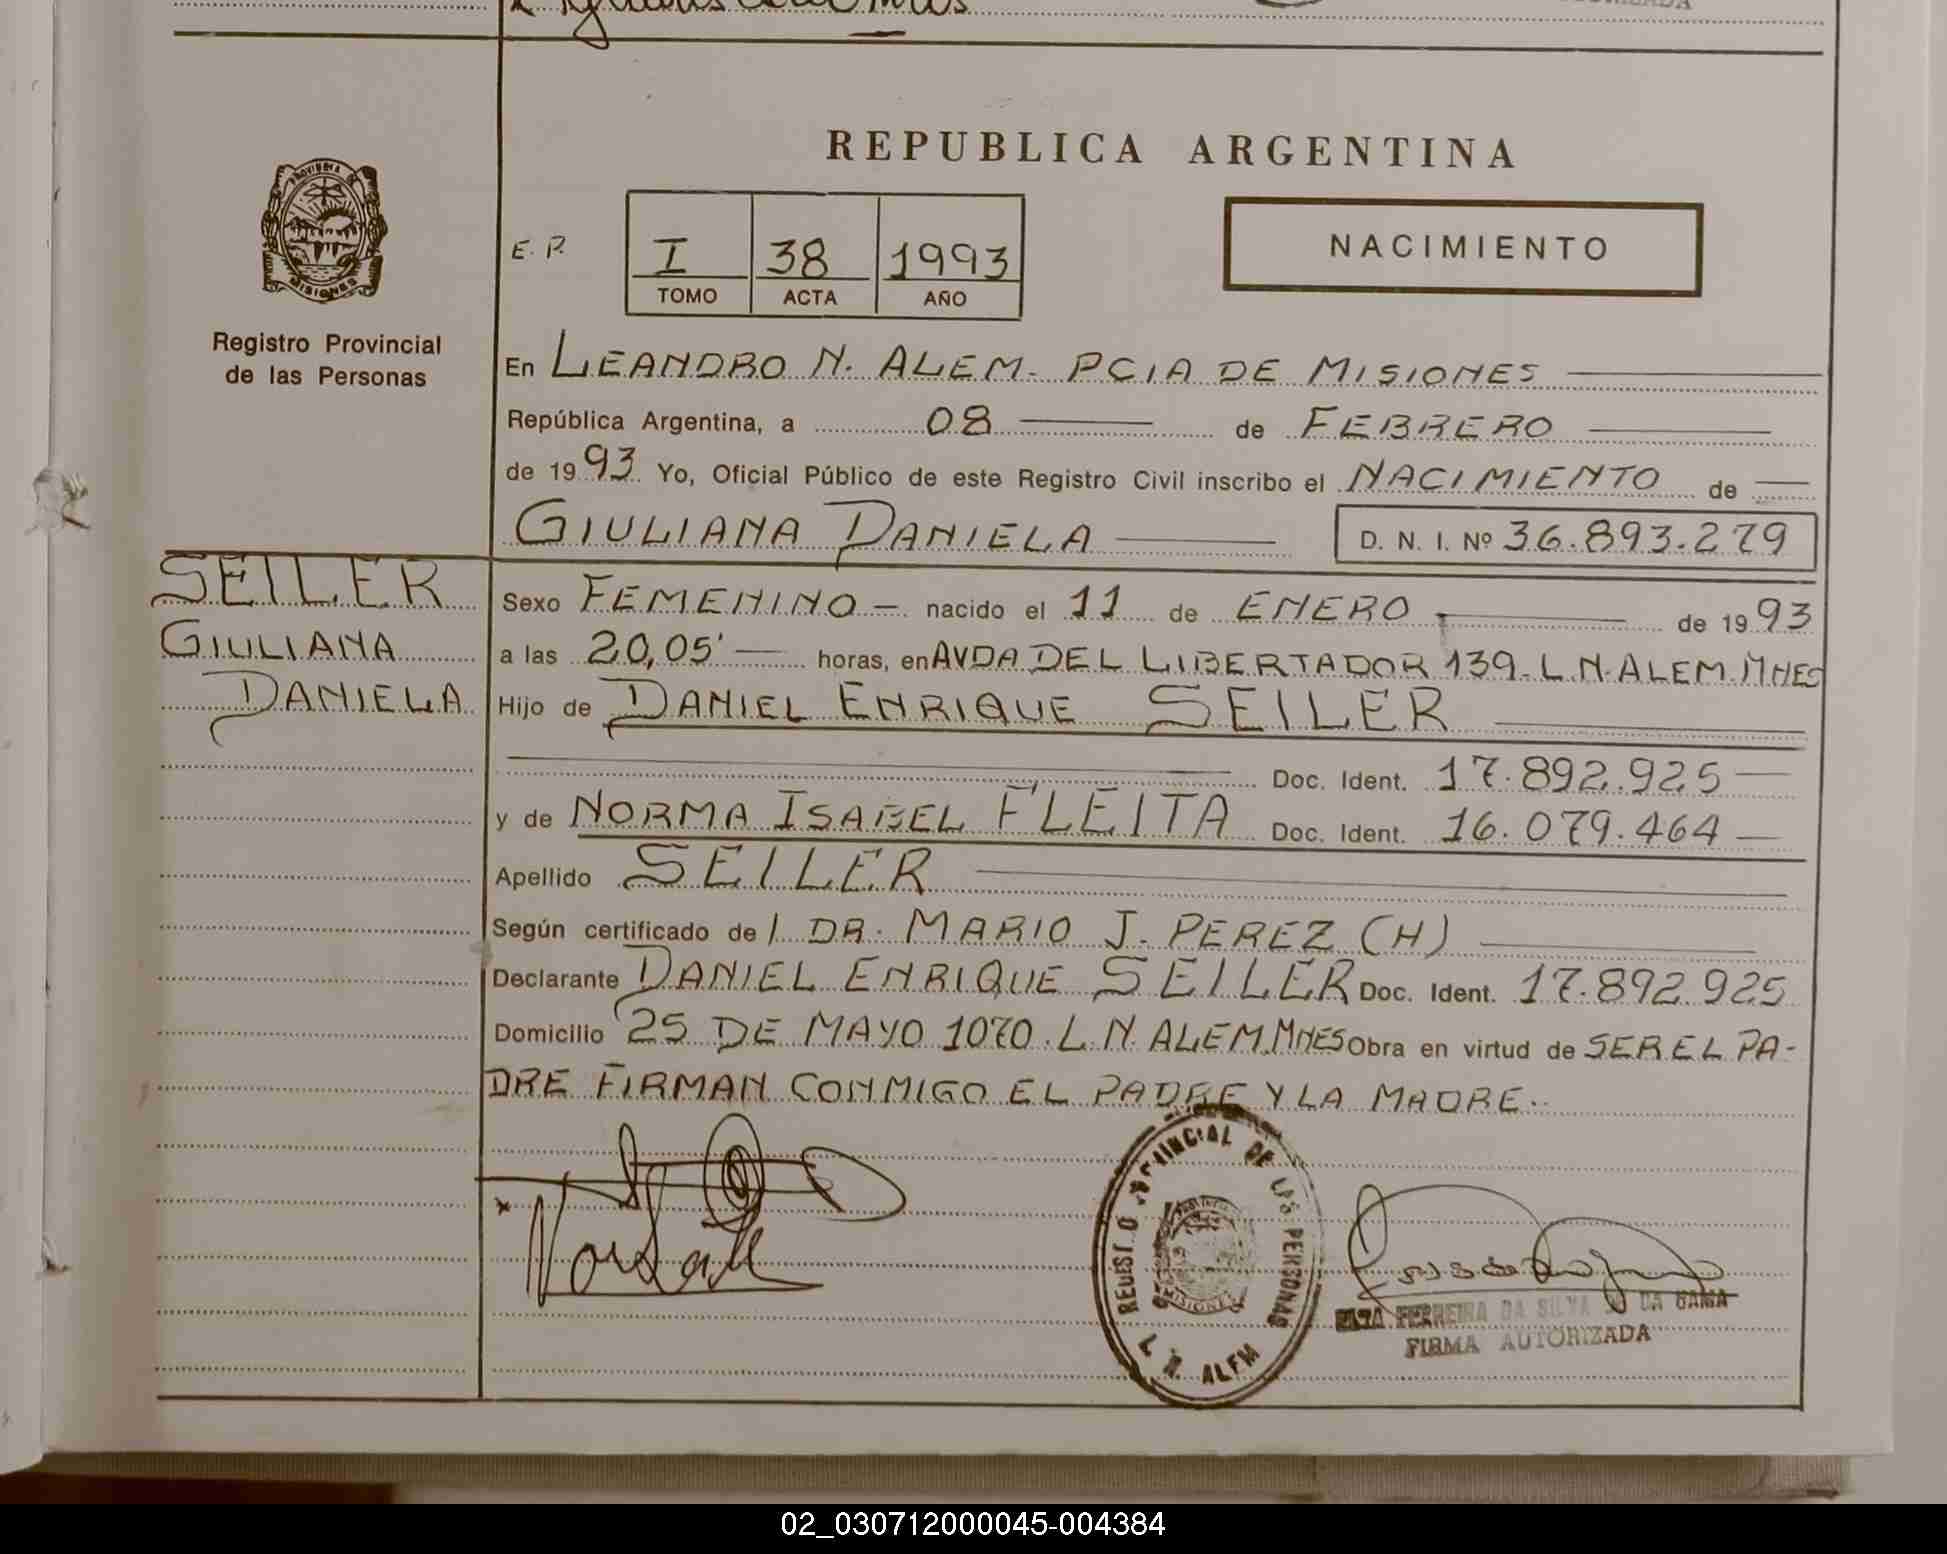 REPUBLICA ARGENTINA
PROVINCIA DE
MISIONES
E. P. I 38 1993
TOMO ACTA AÑO
NACIMIENTO
Registro Provincial
de las Personas
En LEANDRO N. ALEM. PCIA DE MISIONES
República Argentina, a 08 de FEBRERO
de 1993 Yo, Oficial Público de este Registro Civil inscribo el NACIMIENTO de
GIULIANA DANIELA D. N. I. Nº 36.893.279
SEILER
GIULIANA
DANIELA
Sexo FEMENINO - nacido el 11 de ENERO de 1993
a las 20,05' horas, en AVDA DEL LIBERTADOR 139. L N. ALEM. MNES
Hijo de DANIEL ENRIQUE SEILER
Doc. Ident. 17.892.925
y de NORMA ISABEL FLEITA Doc. Ident. 16.079.464
Apellido SEILER
Según certificado de l DR. MARIO J. PEREZ (H)
Declarante DANIEL ENRIQUE SEILER Doc. Ident. 17.892.925
Domicilio 25 DE MAYO 1070. L. N. ALEM. MNES Obra en virtud de SER EL PA-
DRE FIRMAN CONMIGO EL PADRE Y LA MADRE.
PROVINCIAL DE LAS PERSONAS
MISIONES
L. N. ALEM
FERREIRA DA SILVA DE DA GAMA
FIRMA AUTORIZADA
02_030712000045-004384